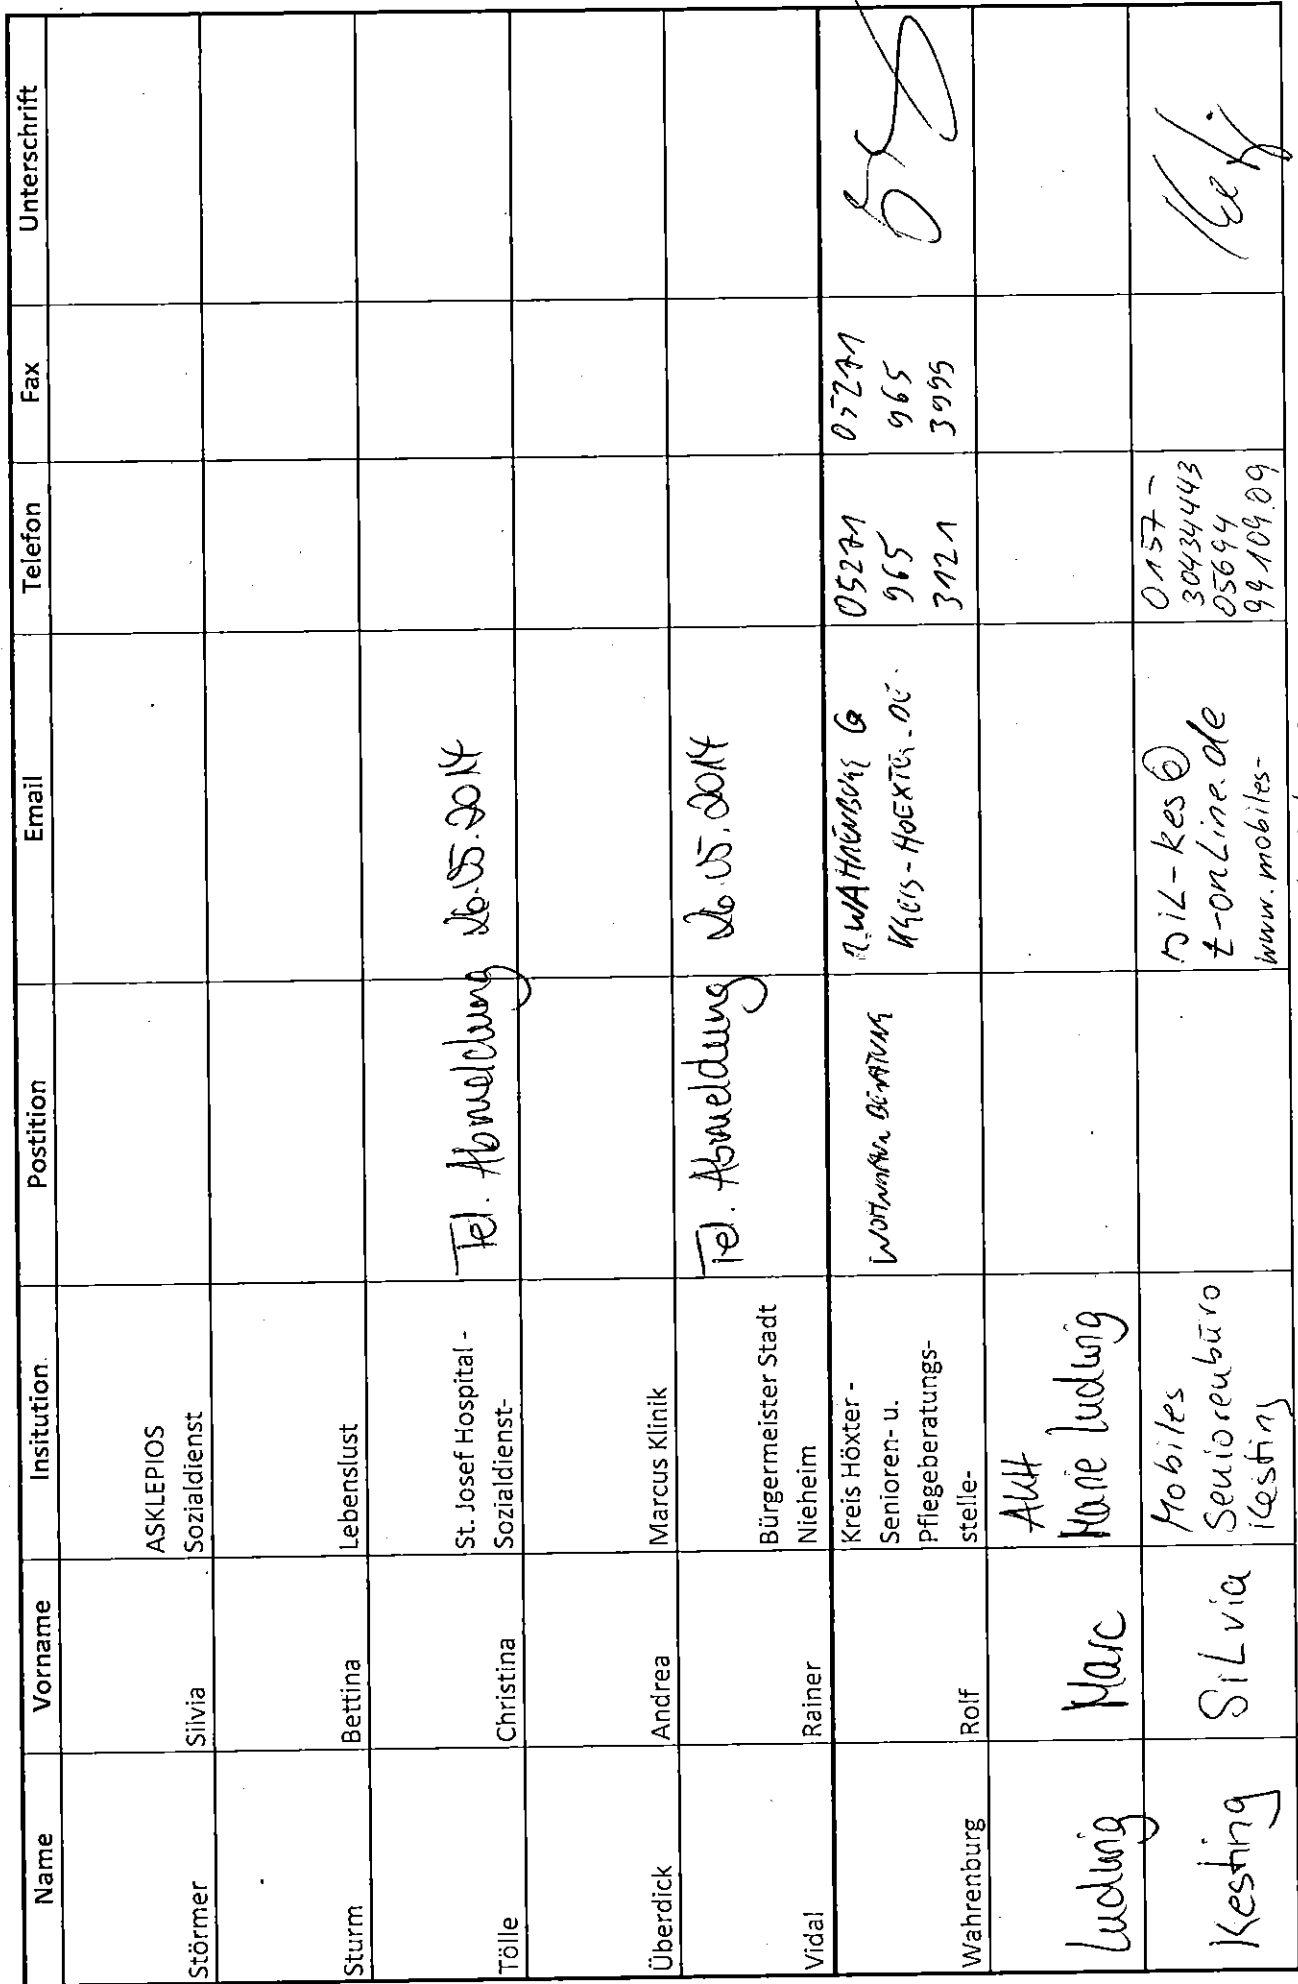 Name Vorname Insitution Postition Email Telefon Fax Unterschrift
Störmer Silvia ASKLEPIOS
Sozialdienst
Sturm Bettina Lebenslust
Tölle Christina St. Josef Hospital -
Sozialdienst-
Tel. Abmeldung 26.05.2014
Überdick Andrea Marcus Klinik
Vidal Rainer Bürgermeister Stadt
Nieheim
Tel. Abmeldung 26.05.2014
Wahrenburg Rolf Kreis Höxter -
Senioren- u.
Pflegeberatungs-
stelle-
R.WAHRENBURG @
KREIS-HOEXTER.DE
05271
965
3121
05271
965
3999
Ludwig Marc AHH
Marie Ludwig
Kesting SiLvia Mobiles
Seniorenbüro
Kesting
siL-kes@
t-onLine.de
www.mobiles-
0157-
30434443
05694
99 109 09